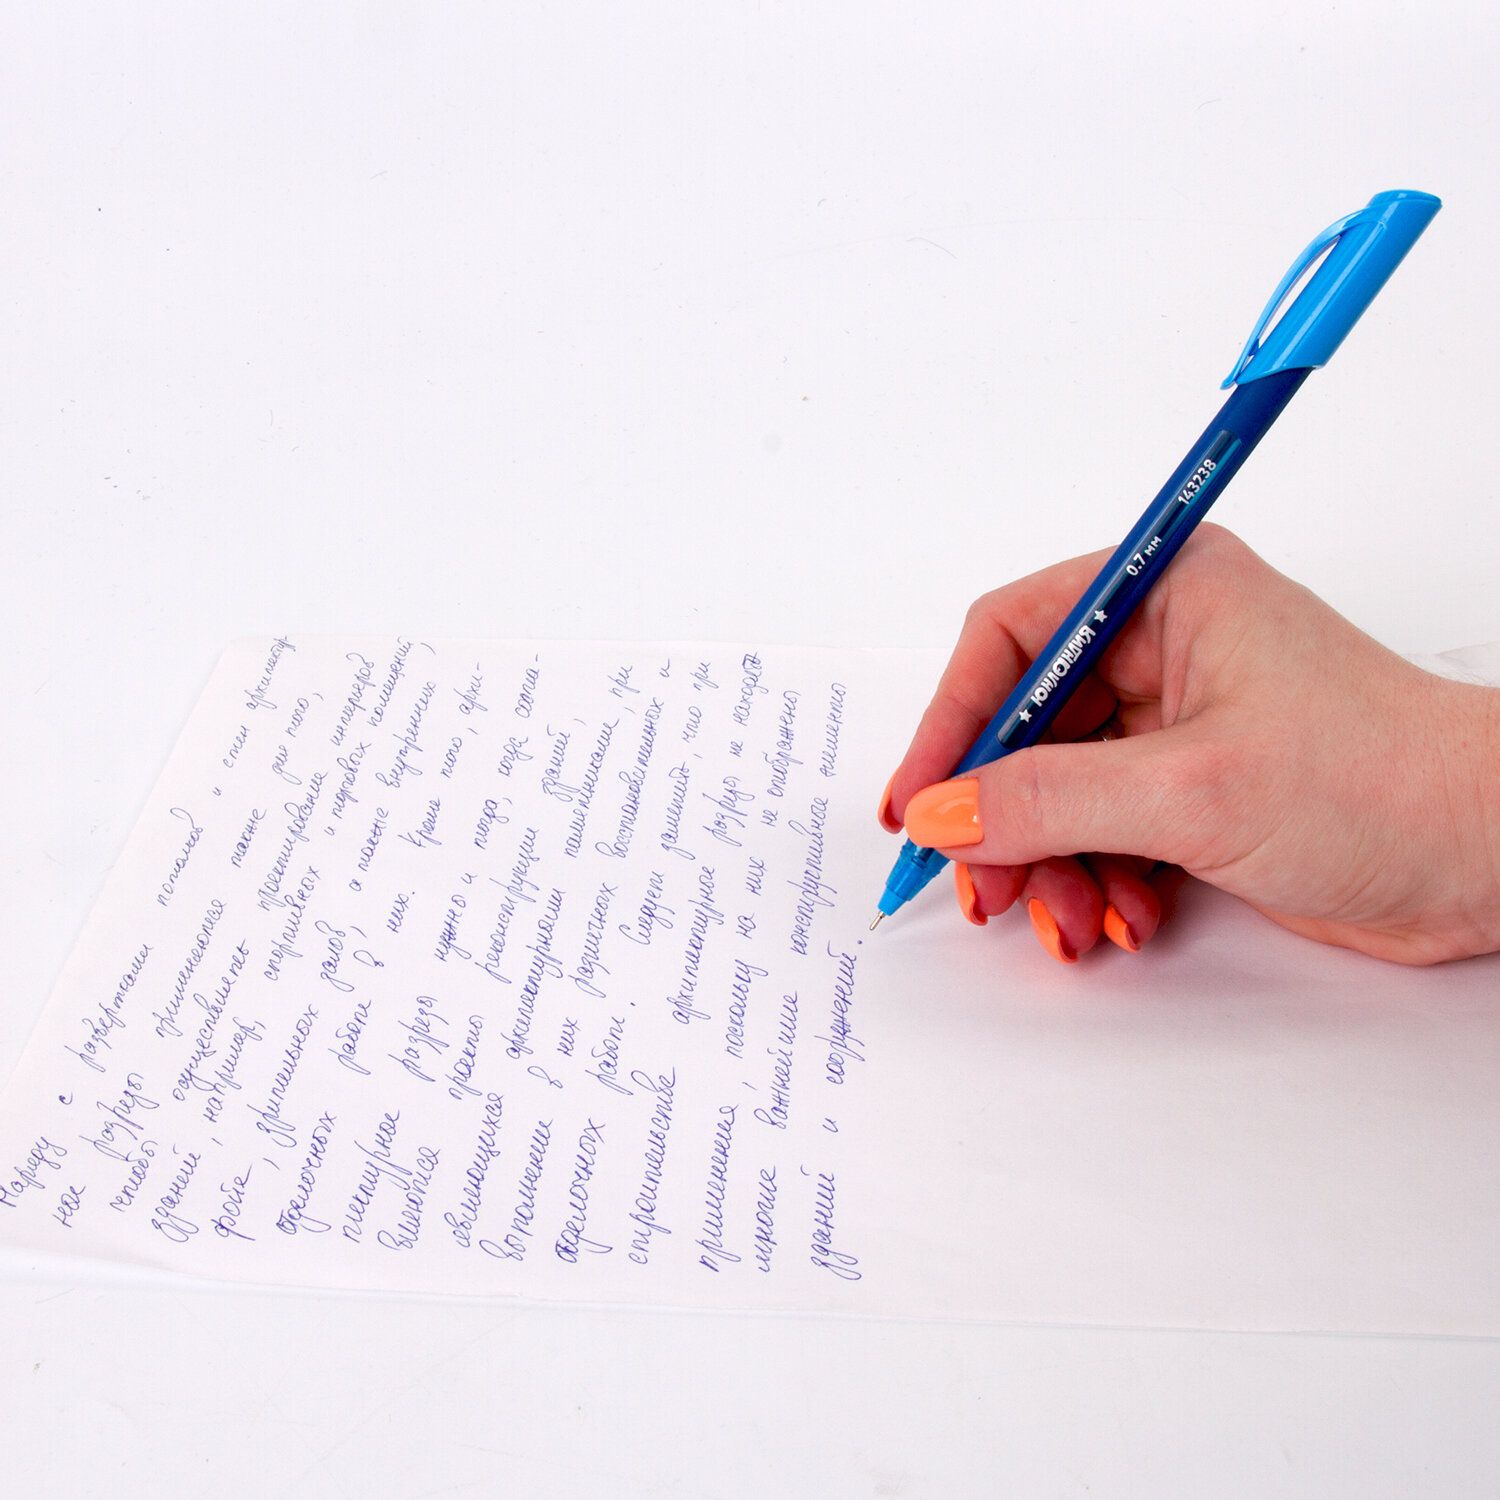 Наряду с развертками потолков и стен архитектур-
ные разрезы применяются также для того,
чтобы осуществлять проектирование интерьеров
зданий, например, спортивных и торговых помещений,
фойе, зрительных залов, а также внутренних
отделочных работ в них. Кроме того, архи-
тектурные разрезы нужны и тогда, когда созда-
вшеются проекты реконструкции зданий,
являющихся архитектурными памятниками, при
выполнении в них различных восстановительных и
отделочных работ. Следует заметить, что при
строительстве архитектурные разрезы не находят
применения, поскольку на них не отображены
многие важнейшие конструктивные элементы
зданий и сооружений.
ЮНЛАНДИЯ 0.7 мм 143238